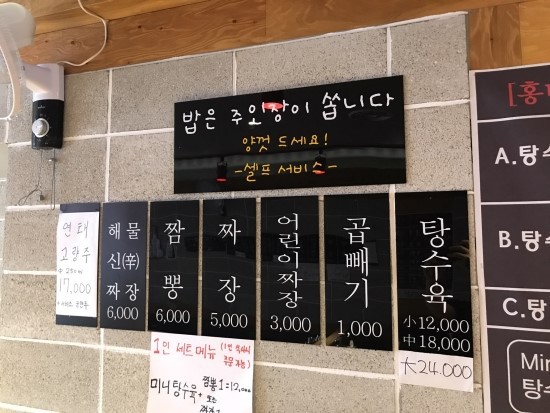 밥은 주인장이 쏩니다
양껏 드세요!
-셀프 서비스-
연태
고량주
中
17,000
해물
신(辛)
짜장
6,000
짬
뽕
6,000
짜
장
5,000
어린이짜장
3,000
곱빼기
1,000
탕수육
小 12,000
中 18,000
大 24,000
1인 세트메뉴
미니탕수육+
짬뽕1=12,000
또는
[홍
A.탕수
B.탕수
C.탕
Min
탕수